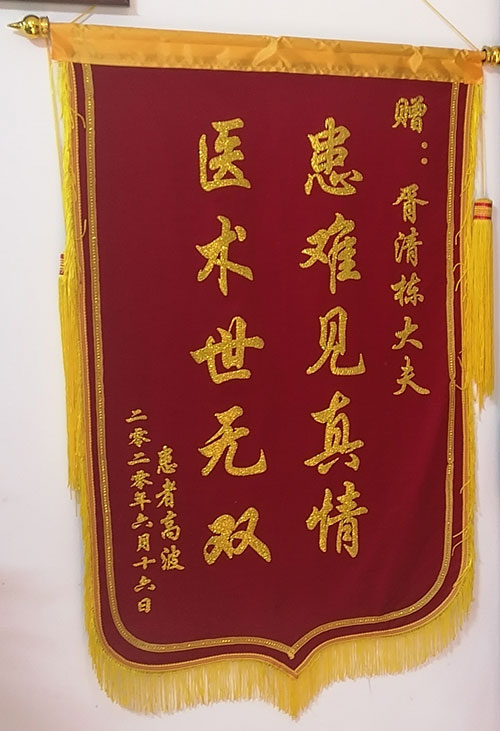 赠：胥清栋大夫
患难见真情
医术世无双
患者高波
二零二零年六月十六日